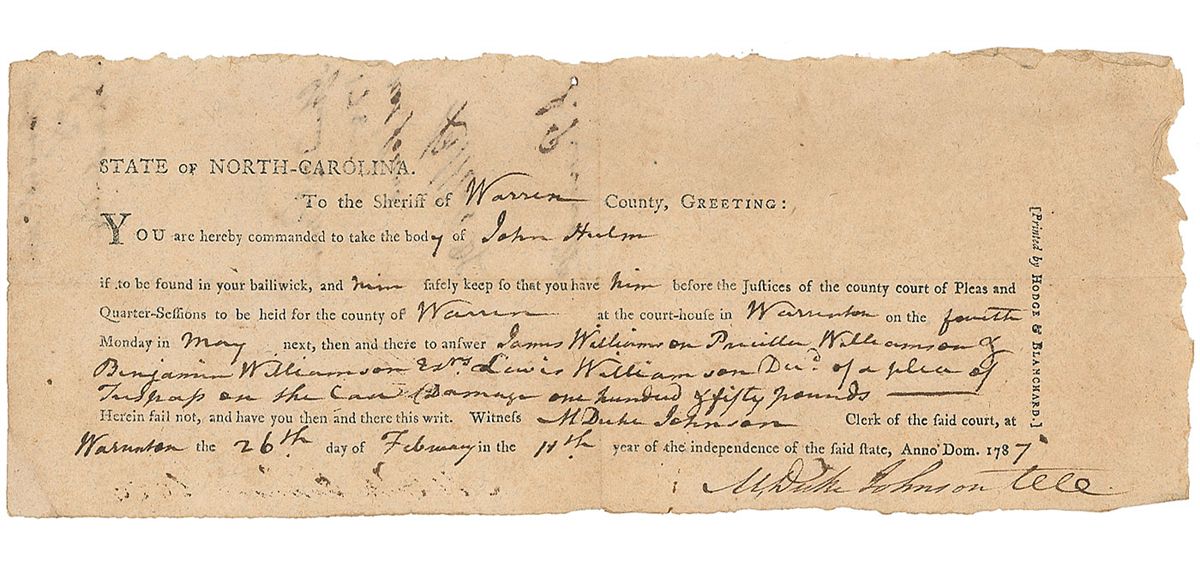 STATE OF NORTH-CAROLINA.
To the Sheriff of Warren County, GREETING:
YOU are hereby commanded to take the body of John Hulm
if to be found in your bailiwick, and him safely keep so that you have him before the Justices of the county court of Pleas and
Quarter-Sessions to be held for the county of Warren at the court-house in Warrenton on the fourth
Monday in May next, then and there to answer James Williamson Priscilla Williamson &
Benjamin Williamson Exrs Lewis Williamson Decd. of a plea of
Trespass on the Case Damage one hundred & fifty pounds
Herein fail not, and have you then and there this writ. Witness M Duke Johnson Clerk of the said court, at
Warrenton the 26th day of February in the 11th year of the independence of the said state, Anno Dom. 1787
M, Duke Johnson
[Printed by HODGE & BLANCHARD.]